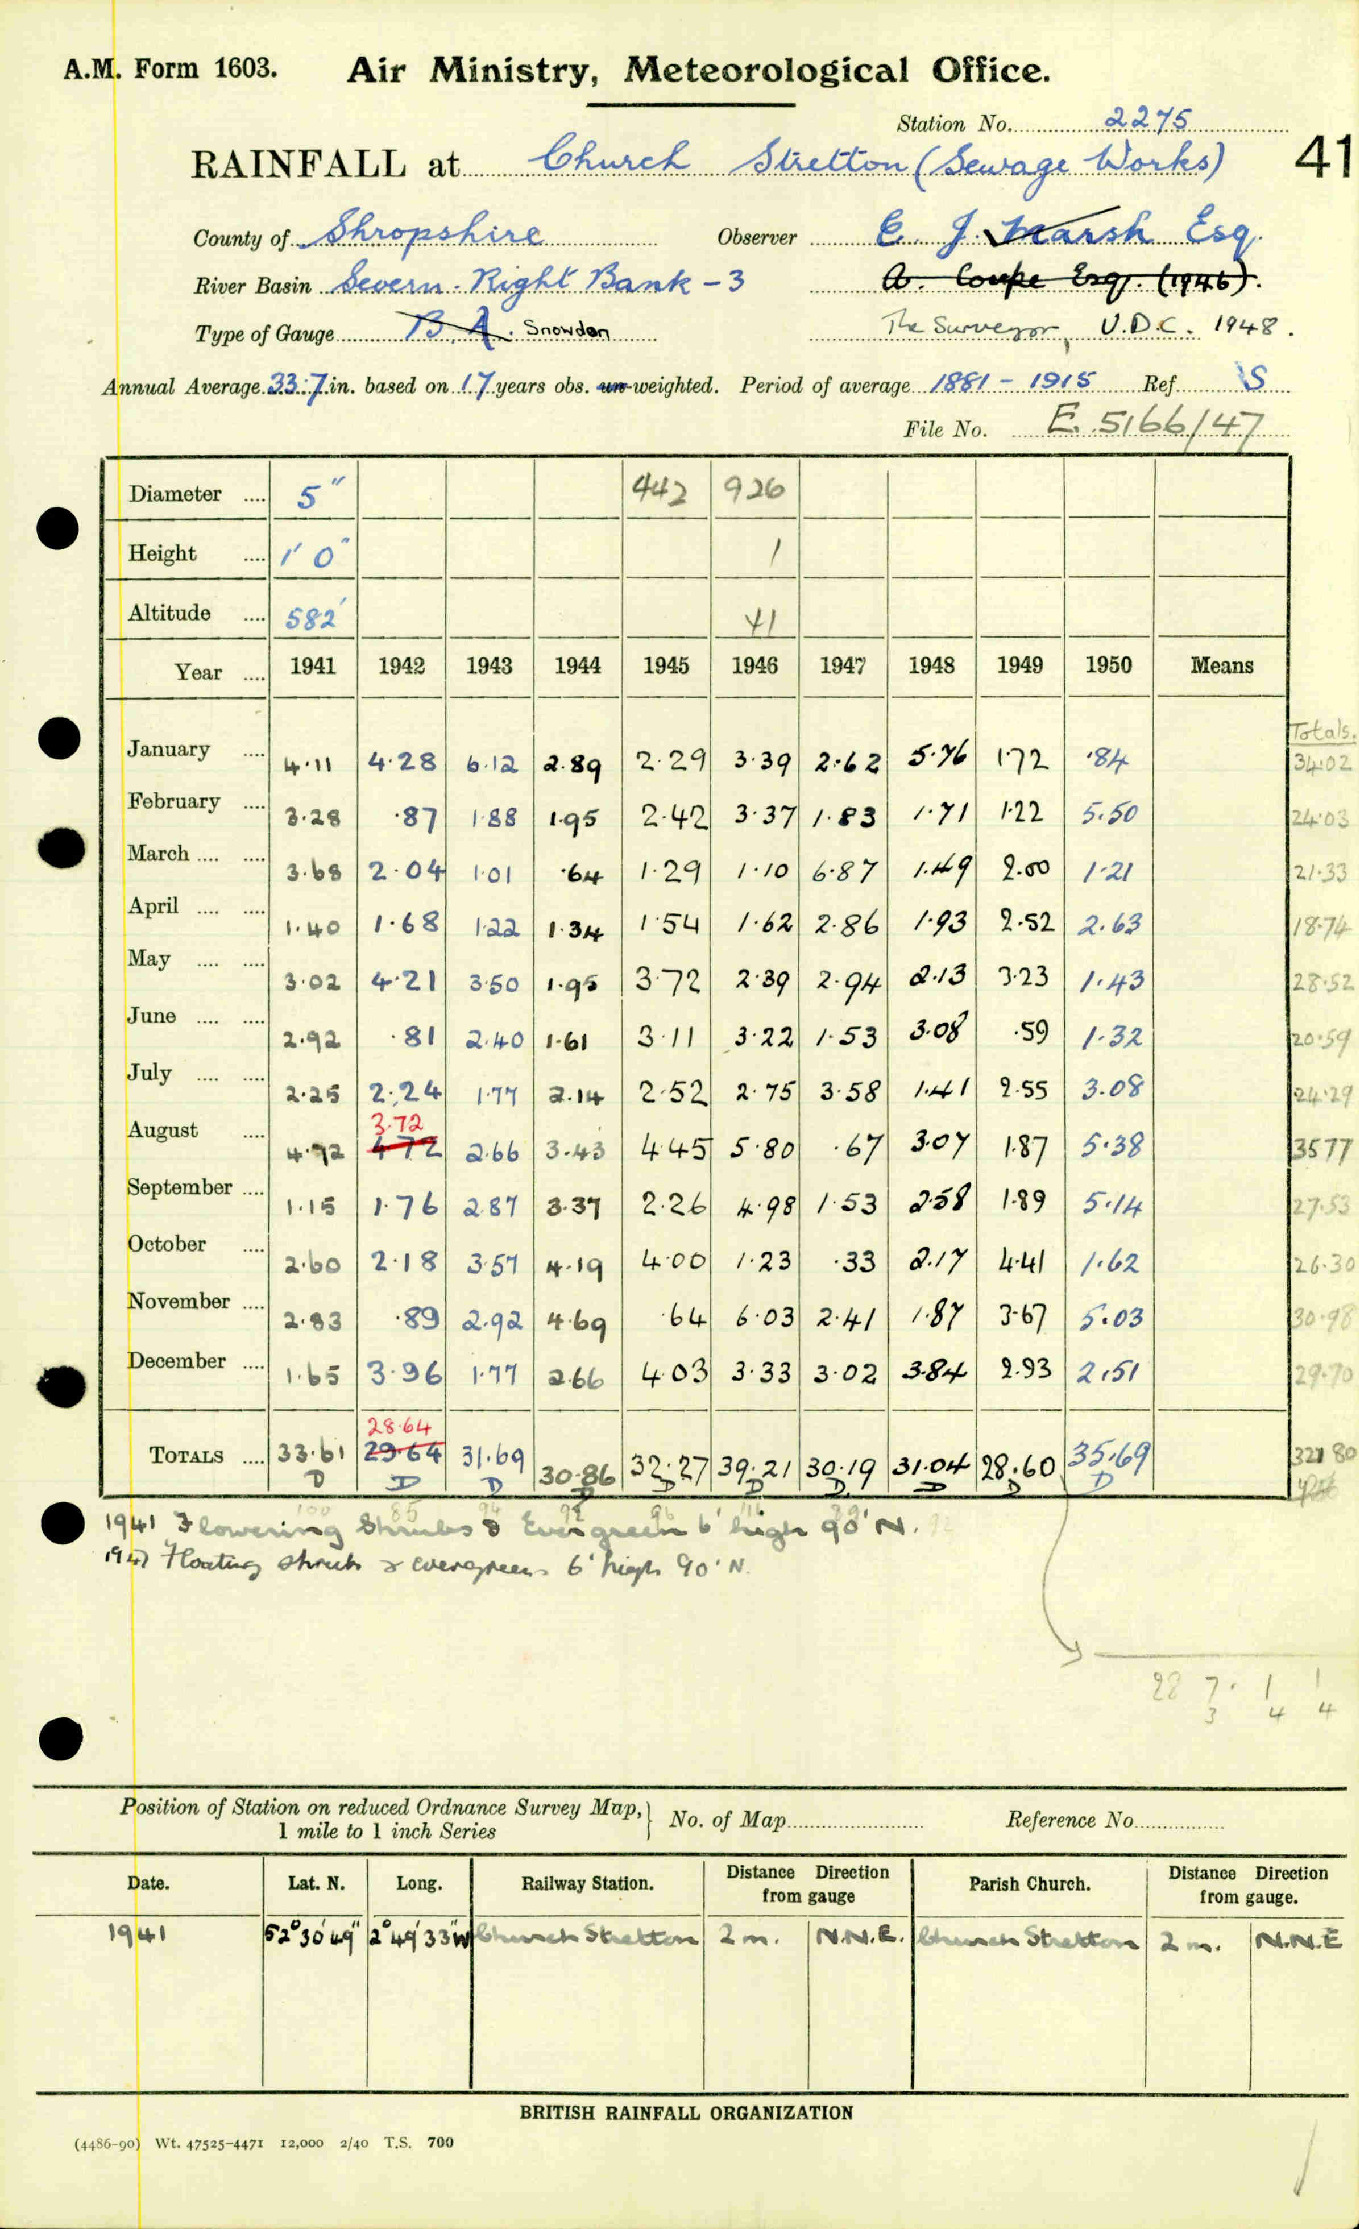 A.M. Form 1603. Air Ministry, Meteorological Office.
Station No. 2275
RAINFALL at Church Stretton (Sewage Works) 41
County of Shropshire Observer E. J. Marsh Esq.
River Basin Severn. Right Bank - 3 A. Coupe Esq. (1946).
Type of Gauge B.A. Snowdon The Surveyor, U.D.C. 1948.
Annual Average 33.7 in. based on 17 years obs. un-weighted. Period of average 1881 - 1915 Ref. S
File No. E.5166/47
Diameter .... 5" 442 926
Height .... 1' 0" 1
Altitude .... 582' 41
Year .... 1941 1942 1943 1944 1945 1946 1947 1948 1949 1950 Means
Totals.
January .... 4.11 4.28 6.12 2.89 2.29 3.39 2.62 5.76 1.72 .84 34.02
February .... 3.28 .87 1.88 1.95 2.42 3.37 1.83 1.71 1.22 5.50 24.03
March .... .... 3.68 2.04 1.01 .64 1.29 1.10 6.87 1.49 2.00 1.21 21.33
April .... .... 1.40 1.68 1.22 1.34 1.54 1.62 2.86 1.93 2.52 2.63 18.74
May .... .... 3.02 4.21 3.50 1.95 3.72 2.39 2.94 2.13 3.23 1.43 28.52
June .... .... 2.92 .81 2.40 1.61 3.11 3.22 1.53 3.08 .59 1.32 20.59
July .... .... 2.25 2.24 1.77 2.14 2.52 2.75 3.58 1.41 2.55 3.08 24.29
3.72
August .... 4.72 4.72 2.66 3.43 4.45 5.80 .67 3.07 1.87 5.38 35.77
September .... 1.15 1.76 2.87 3.37 2.26 4.98 1.53 2.58 1.89 5.14 27.53
October .... 2.60 2.18 3.57 4.19 4.00 1.23 .33 2.17 4.41 1.62 26.30
November .... 2.83 .89 2.92 4.69 .64 6.03 2.41 1.87 3.67 5.03 30.98
December .... 1.65 3.96 1.77 2.66 4.03 3.33 3.02 3.84 2.93 2.51 29.70
28.64
TOTALS .... 33.61 29.64 31.69 30.86 32.27 39.21 30.19 31.04 28.60 35.69 321 80
D D D D D D D D D D
1941 Flowering Shrubs & Evergreen 6' high 90' N.
1947 Floating shrub & evergreens 6' high 90' N.
28 7. 1 1
3 4 4
Position of Station on reduced Ordnance Survey Map, 1 mile to 1 inch Series No. of Map Reference No.
Date. Lat. N. Long. Railway Station. Distance Direction from gauge Parish Church. Distance Direction from gauge.
1941 52° 30' 49" 2° 49' 33" W Church Stretton 2 m. N.N.E. Church Stretton 2 m. N.N.E
BRITISH RAINFALL ORGANIZATION
(4486-90) Wt. 47525-4471 12,000 2/40 T.S. 700